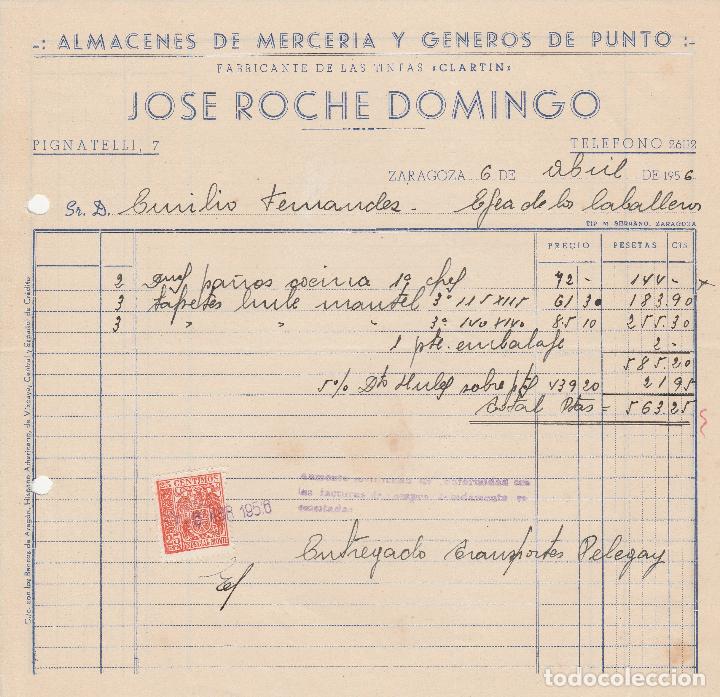 -: ALMACENES DE MERCERIA Y GENEROS DE PUNTO :-
FABRICANTE DE LAS TINTAS «CLARTIN»
JOSE ROCHE DOMINGO
PIGNATELLI, 7 TELEFONO 26112
ZARAGOZA 6 DE Abril DE 1956
Sr. D. Emilio Fernandez - Egea de los Caballeros
TIP. M. SERRANO. ZARAGOZA
PRECIO PESETAS CTS
2 paños cocina 1ª 72 - 144 -
3 Tapetes hule mantel 3ª 115 x 115 61 30 183.90
3 " " " 3ª 140 x 140 85 10 255.30
1 pte. embalaje 2 -
585.20
5% Dto Hules sobre pts 439 20 21 95
Total Ptas = 563.25
Cta. con los Bancos de Aragón, Hispano Americano, de Vizcaya, Central y Español de Crédito
25 CENTIMOS
6 ABR 1956
ESPECIAL MOVIL
las facturas de
Entregado Transportes Pelegay